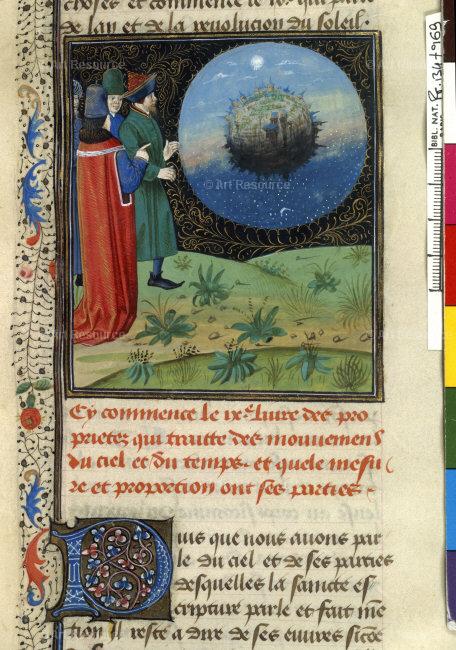 choses et commence le ixe qui parle
de lan et de la revolucion du soleil.
BIBL. NAT. Fr. 134 f° 169
© Art Resource
© Art Resource
Cy commence le ixe. livre des pro
prietez qui traitte des mouvemens
du ciel et du temps. et quele mesu
re et proporcion ont ses parties.
Puis que nous avons par
le du ciel et de ses parties
desquelles la saincte es
cripture parle et fait men
tion Il reste a dire de ses euvres